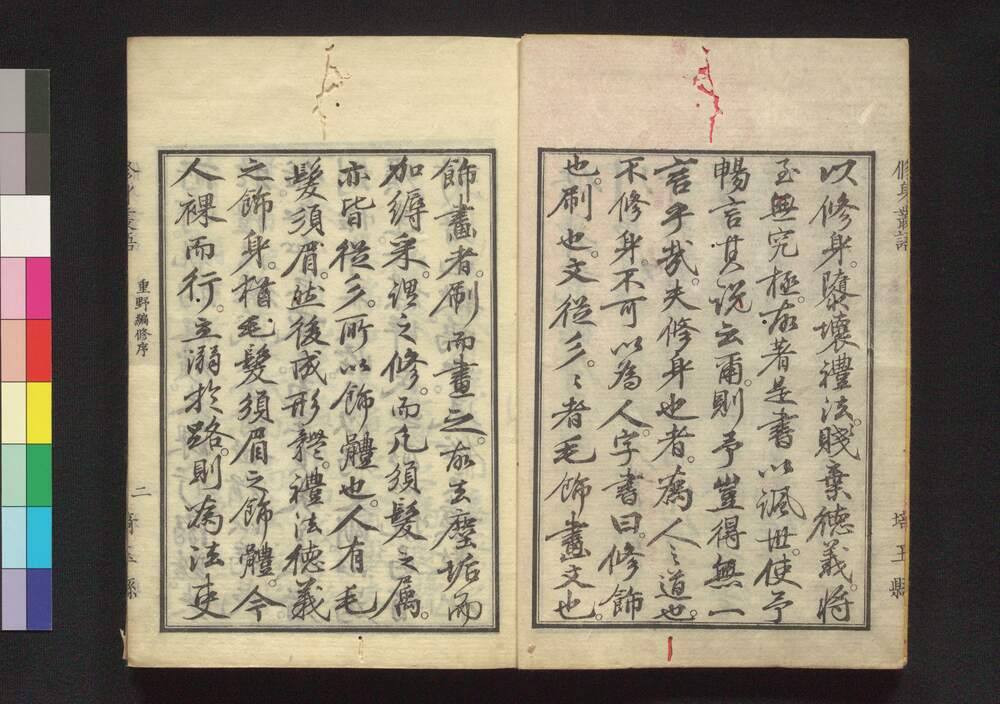 以修身。隳壞禮法。賤棄德義。將
至無究極。故著是書以諷世。使予
暢言其説云爾。則予豈得無一
言乎哉。夫修身也者。為人之道也。
不修身。不可以為人。字書曰。修飾
也。刷也。文從彡。彡者毛飾畫文也。
飾畫者。刷而畫之。故去塵垢而
加縟采。謂之修。而凡須髮之属。
亦皆從彡。所以飾體也。人有毛
髮須眉。然後成形體。禮法德義
之飾身。猶毛髮須眉之飾體。今
人裸而行。立溺於路。則為法吏
修身叢語
埼玉縣
重野編修序
二
埼玉縣